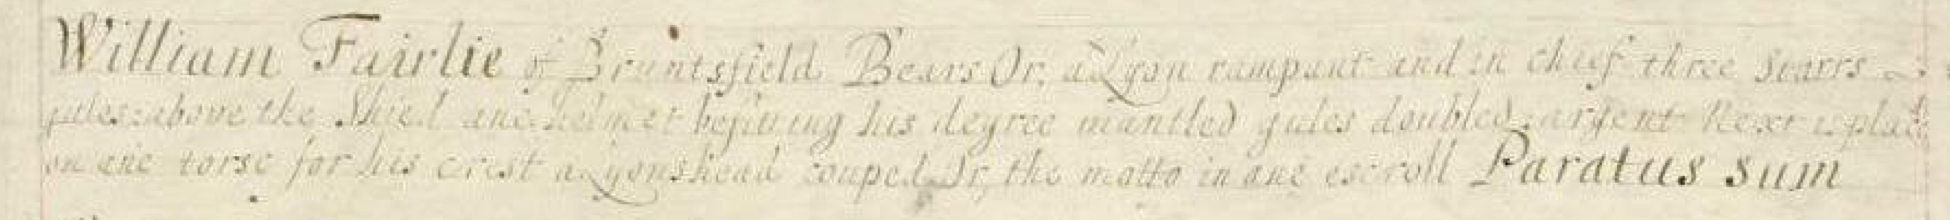 William Fairlie of Bruntsfield Bears Or, a Lyon rampant and in chief three Starrs
gules: above the Shield ane helmet befitting his degree mantled gules doubled argent Next is plac't
on ane torse for his crest a Lyonshead couped Or, the motto in ane escroll Paratus sum